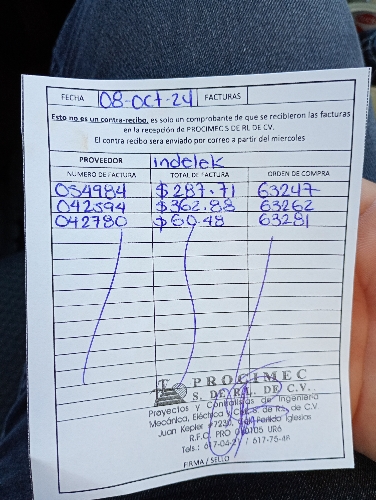 FECHA 08-OCT-24 FACTURAS
Esto no es un contra-recibo, es solo un comprobante de que se recibieron las facturas
en la recepción de PROCIMEC S DE RL DE CV.
El contra recibo sera enviado por correo a partir del miercoles
PROVEEDOR Indelek
NUMERO DE FACTURA TOTAL DE FACTURA ORDEN DE COMPRA
054984 $287.71 63247
042594 $362.88 63262
042780 $60.48 63281
PROCIMEC
S. DE R.L. DE C.V.
Proyectos y Controlistas de Ingeniería
Mecánica, Eléctrica y Civil S. de R.L. de C.V.
Juan Kepler #7230, Iglesias
R.F.C. PRO
Tels.: 617-04-21 / 617-75-48
FIRMA / SELLO